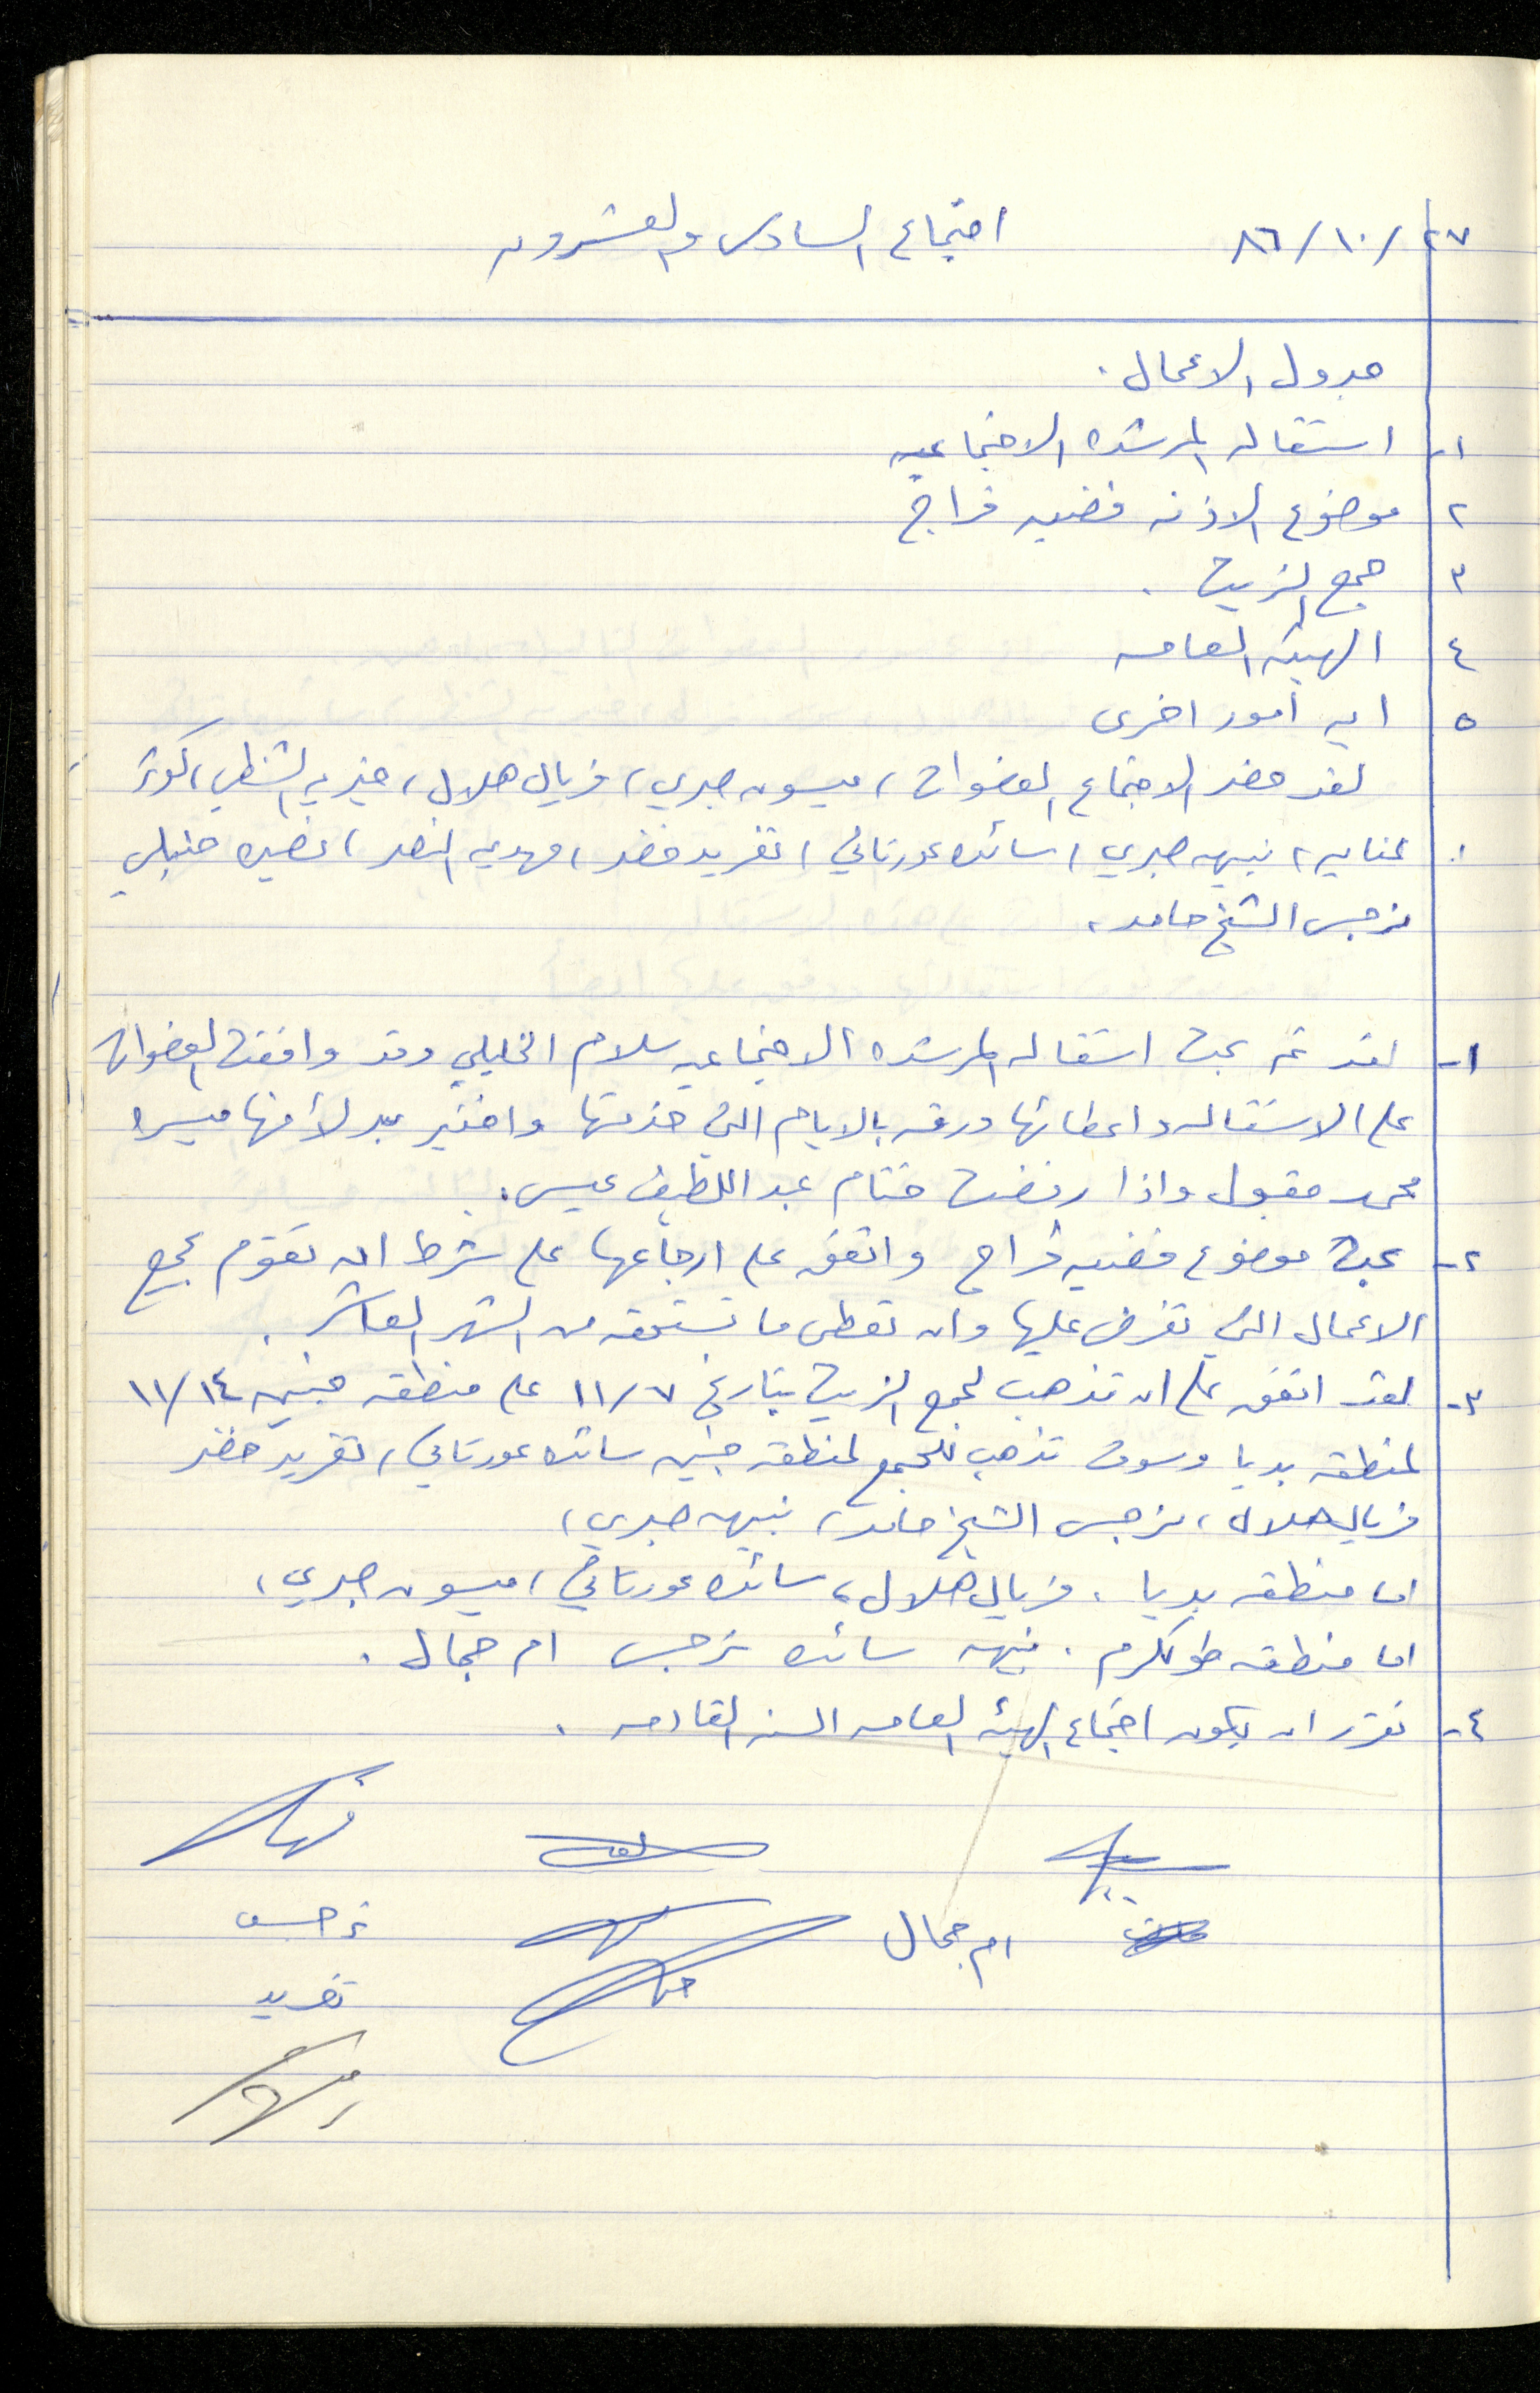 ٢٧/١٠/٨٦ اجتماع السادس والعشرون
جدول الاعمال .
١- استقاله المرشده الاجتماعيه
٢ موضوع الاذنه قضيه فراج
٣ جمع الزيت .
٤ الهيئه العامه
٥ ايه امور اخرى
لقد حضر الاجتماع العضوات ، ميسون صبري ، فريال هلال ، خيريه الشنطي ، كوثر
عنايه ، نبيهه صبري ، سائده عورتاني ، تغريد خضر ، مهديه النصر ، نضيره حنبلي
نرجس الشيخ حامد ،
١- لقد تم بحث استقاله المرشده الاجتماعيه سلام الخليلي وقد وافقت العضوات
على الاستقاله واعطائها ورقه بالايام التي خدمتها واختير بدلاً منها ميسره
محمد مقبول واذا رفضت ختام عبد اللطيف عيسى .
٢- بحث موضوع قضيه فراج واتفق على ارجاعها على شرط ان تقوم بجميع
الاعمال التي تفرض عليها وان تعطى ما تستحقه من الشهر العاشر .
٣- لقد اتفق على ان تذهب لجمع الزيت بتاريخ ١١/٧ على منطقه جنين ١١/١٤
لمنطقه بديا وسوف تذهب للجمع لمنطقه جنين سائده عورتاني ، تغريد خضر
فريال هلال ، نرجس الشيخ حامد ، نبيهه صبري ،
اما منطقه بديا . فريال هلال ، سائده عورتاني ، ميسون صبري ،
اما منطقه طولكرم . نبيهه سائده نرجس ام جمال .
٤- تقرر ان يكون اجتماع الهيئه العامه السنه القادمه .
ام جمال
نرجس
تغريد